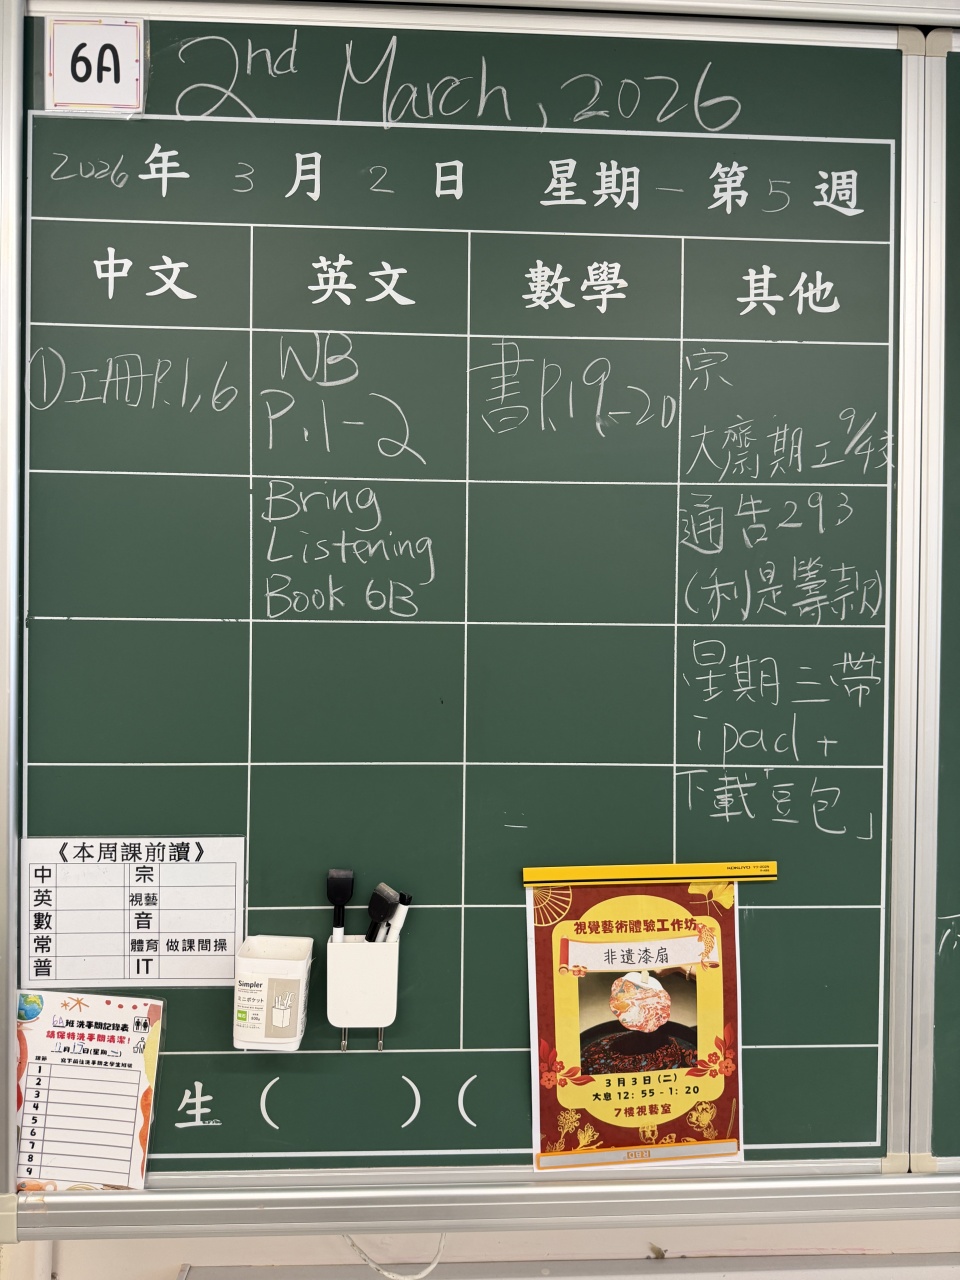 6A
2nd March, 2026
2026年 3月 2日 星期一 第5週
中文 英文 數學 其他
①工冊P.1,6
WB
P.1-2
書P.19-20
宗
大齋期工 9/4交
Bring
Listening
Book 6B
通告293
(利是籌款)
星期三帶
ipad+
下載「豆包」
《本周課前讀》
中 宗
英 視藝
數 音
常 體育 做課間操
普 IT
Simpler
ミニポケット
6A班洗手間記錄表
請保持洗手間清潔！
1
2
3
4
5
6
7
8
9
生 ( ) (
KOKUYO
視覺藝術體驗工作坊
非遺漆扇
3月3日（二）
大息 12：55-1：20
7樓視藝室